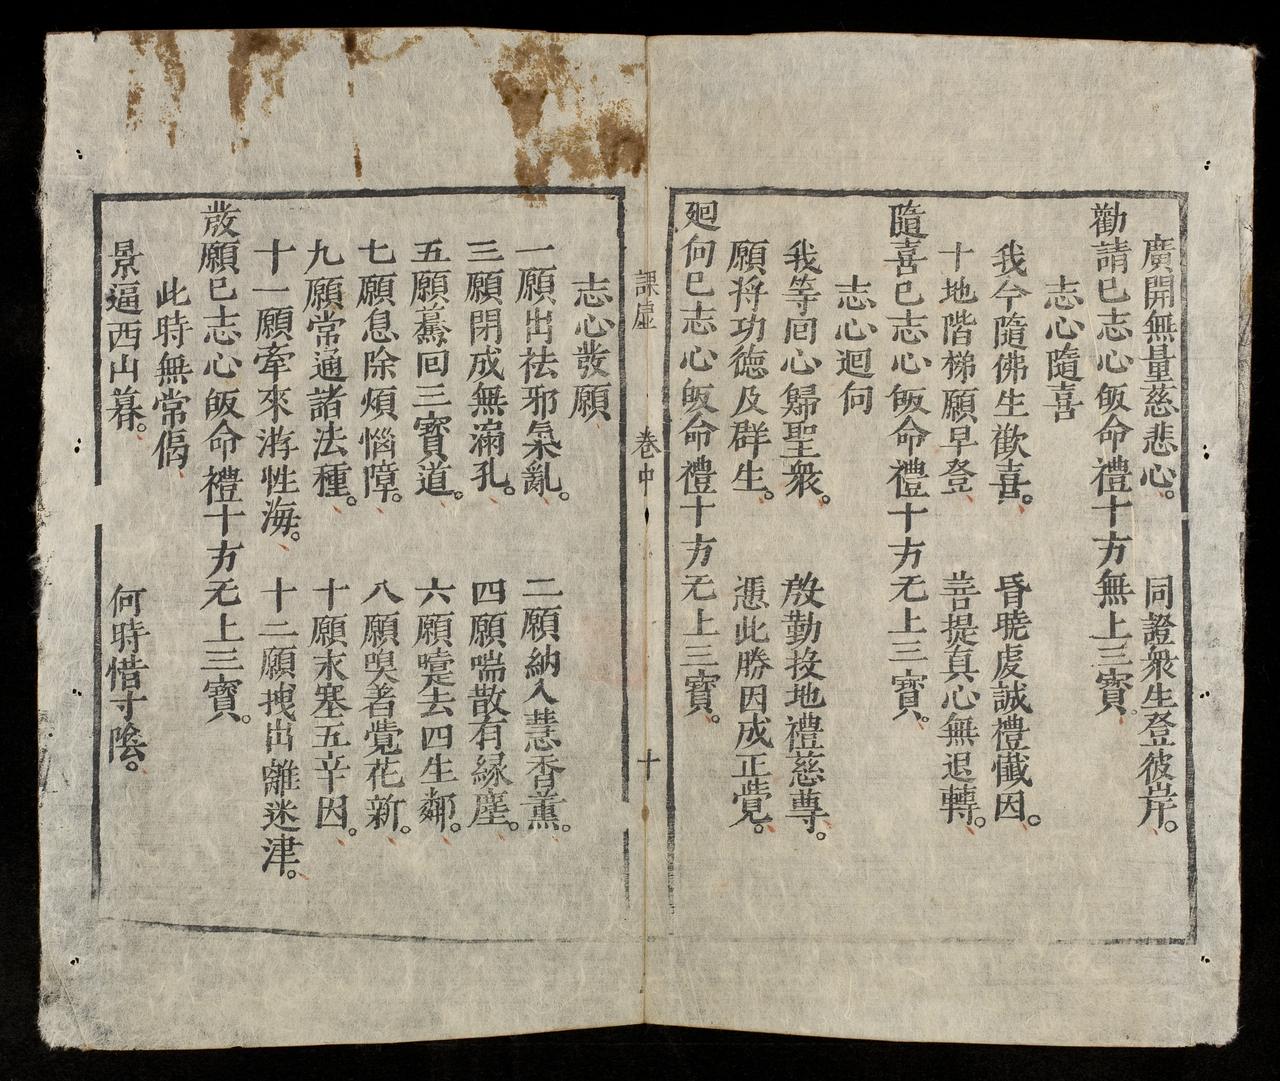 廣開無量慈悲心。 同證衆生登彼岸。
勸請已志心皈命禮十方無上三寶。
志心隨喜
我今隨佛生歡喜。 昏曉虔誠禮懺因。
十地階梯願早登 菩提真心無退轉。
隨喜已志心皈命禮十方无上三寶。
志心迴向
我等回心歸聖衆。 慇勤投地禮慈尊。
願将功德及群生。 憑此勝因成正覺。
迴向已志心皈命禮十方无上三寶。
課虛 卷中 十
志心發願
一願出祛邪氣亂。 二願納入慧香薰。
三願閉成無漏孔。 四願喘散有緣塵。
五願驀回三寶道。 六願嚏去四生鄰。
七願息除煩惱障。 八願嗅著覺花新。
九願常通諸法種。 十願永塞五辛因。
十一願牽來游性海。 十二願拽出離迷津。
發願已志心皈命禮十方无上三寶。
此時無常偈
景逼西山暮。 何時惜寸陰。